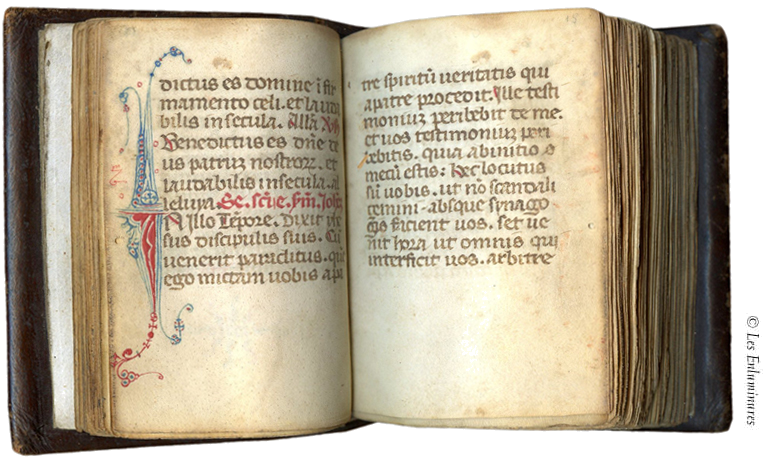 dictus es domine ī fir
mamento celi. et lauda
bilis in secula. Allā
Benedictus es dn̄e de
us patruʒ nostroꝝ. et
laudabilis in secula. al
leluya. Sc̄. sc̄ꝫ. Joh
N illo Tēpore. Dixit yhe
sus discipulis suis. Cū
venerit paraclitus. que
ego mictam uobis a pa
tre spiritū ueritatis qui
a patre procedit. Ille testi
moniuʒ peribebit de me.
et uos testimoniuʒ peri
bebitis. quia ab initio
mecū estis: Hec locutus
sū uobis. ut nō scandali
cemini. absque synago
gis facient uos. set ue
nit hora ut omnis qui
interficit uos. arbitre
© Les Enluminures